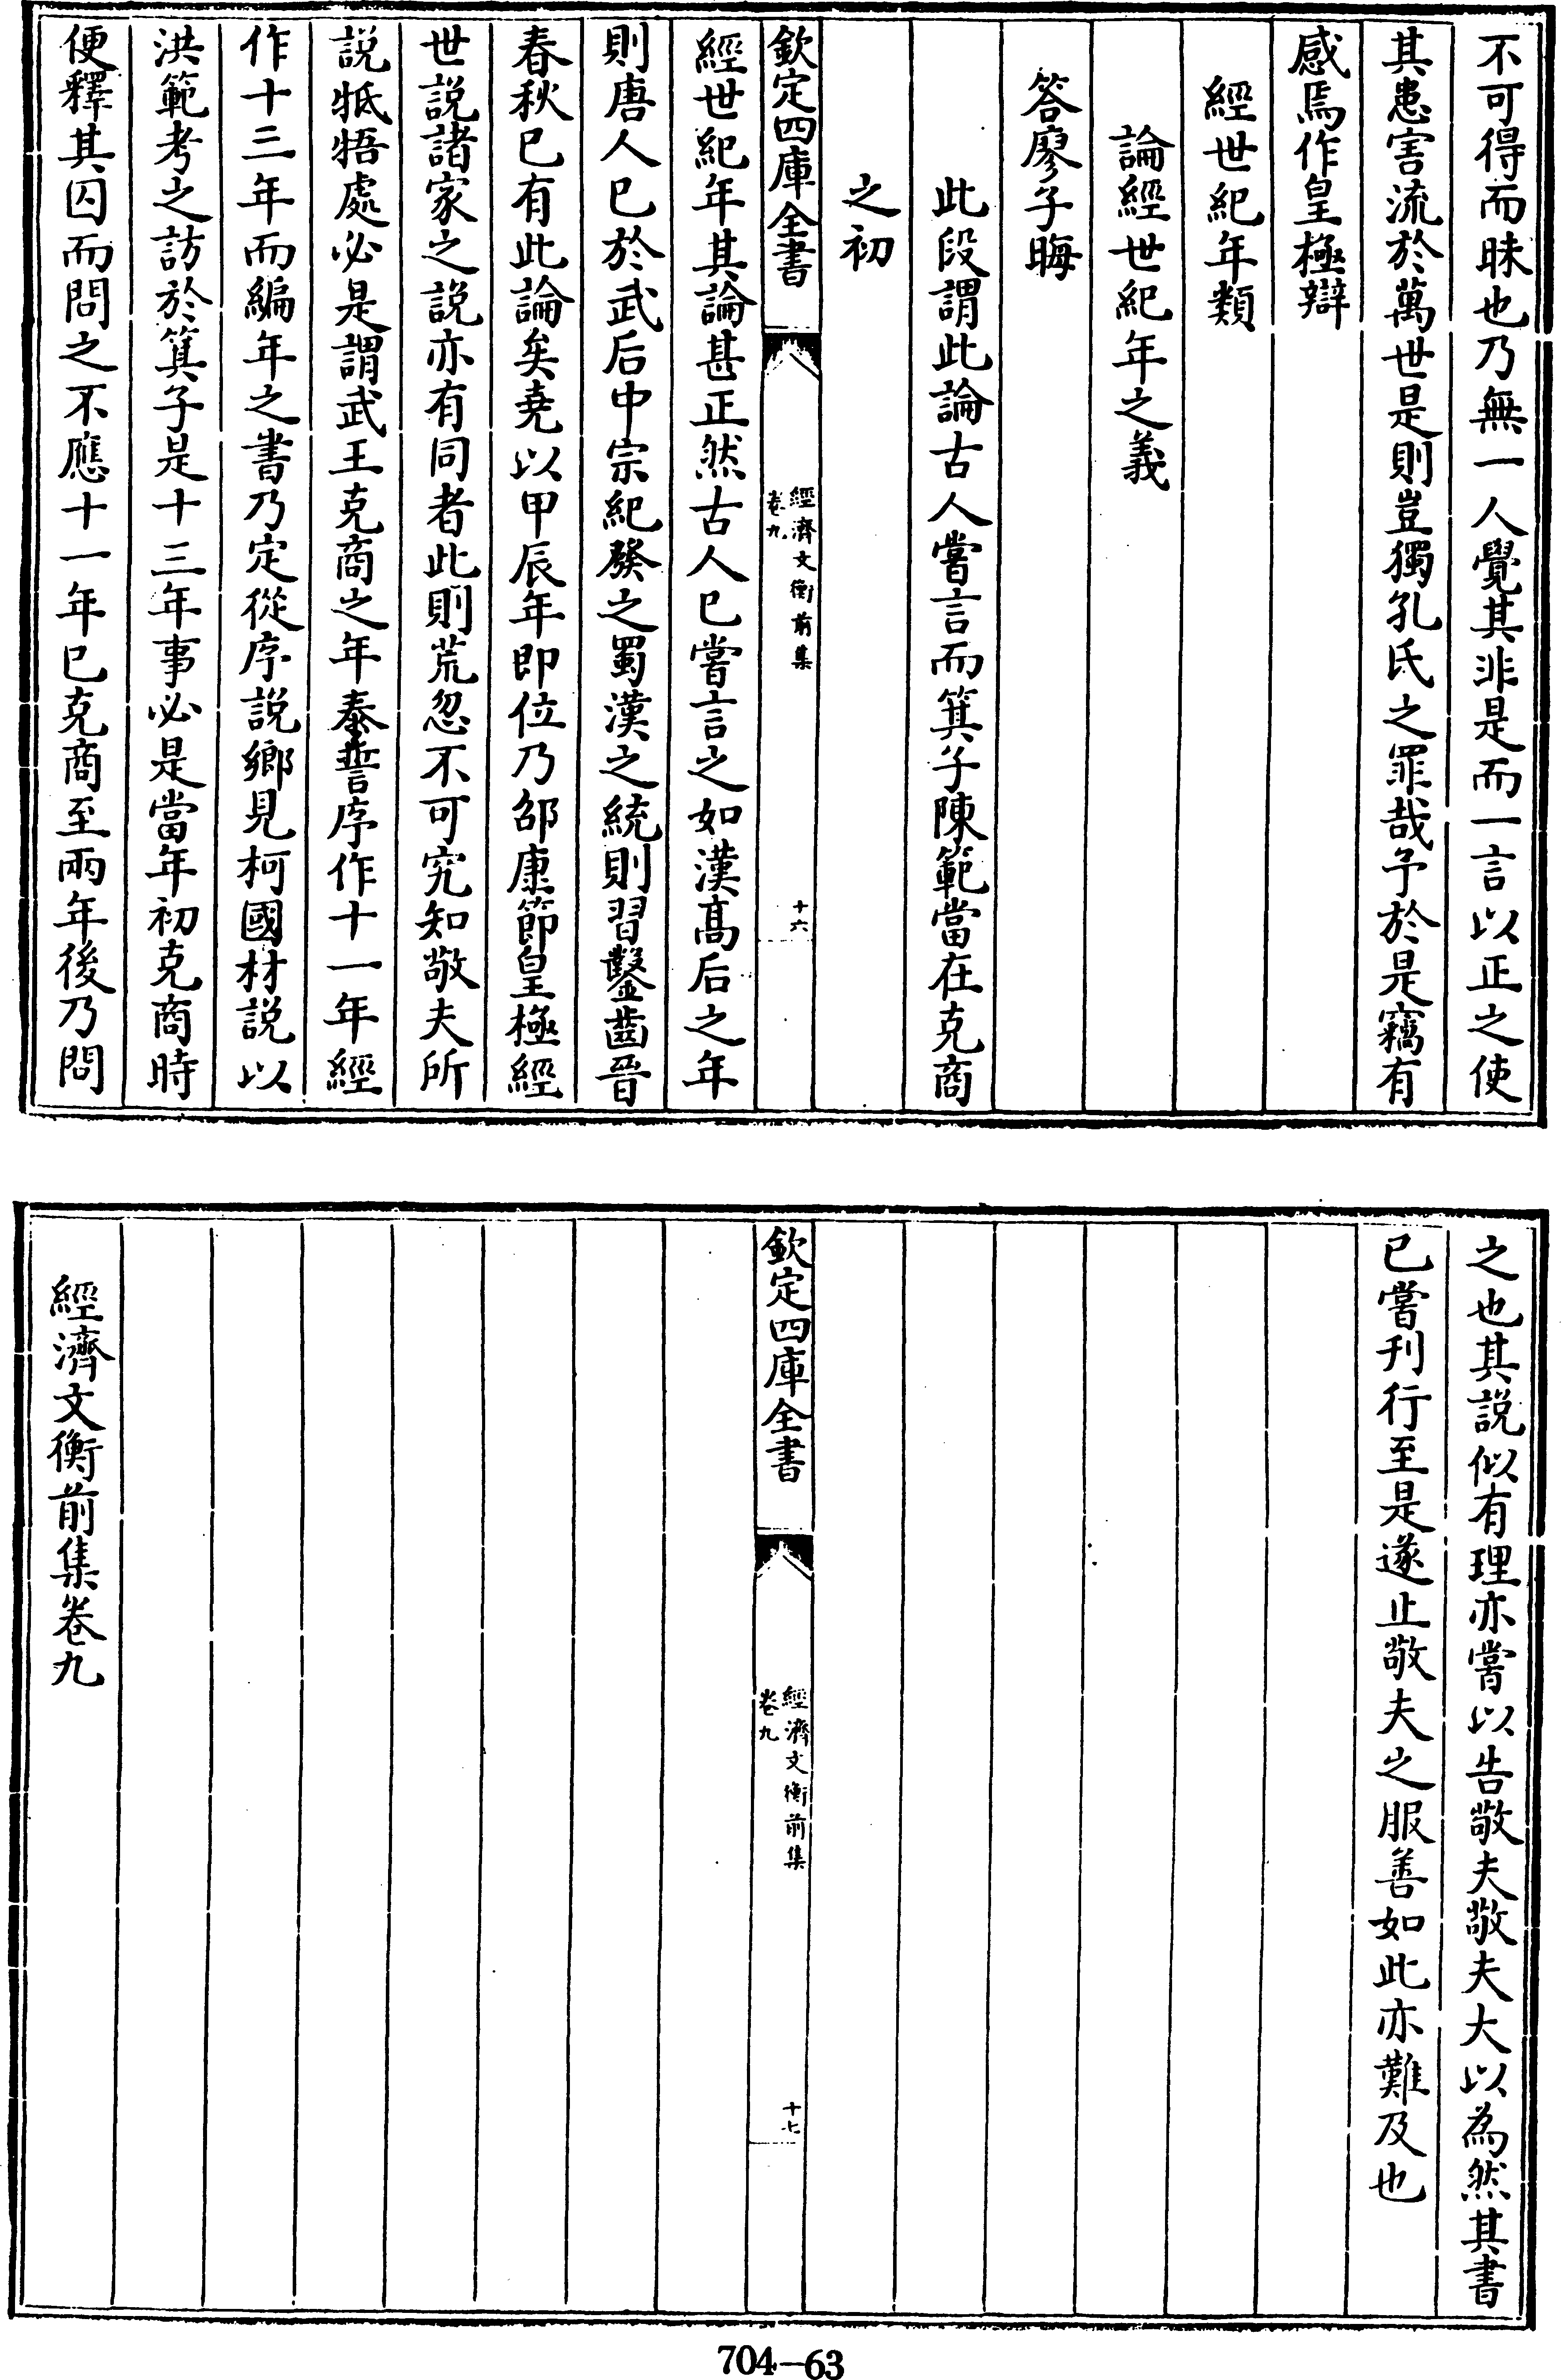 不可得而昧也乃無一人覺其非是而一言以正之使
其患害流於萬世是則豈獨孔氏之罪哉予於是竊有
感焉作皇極辯
經世紀年類
論經世紀年之義
答廖子晦
此段謂此論古人嘗言而箕子陳範當在克商
之初
欽定四庫全書
經濟文衡前集
卷九
十六
經世紀年其論甚正然古人已嘗言之如漢高后之年
則唐人已於武后中宗紀發之蜀漢之統則習鑿齒晉
春秋已有此論矣堯以甲辰年即位乃邵康節皇極經
世説諸家之説亦有同者此則荒忽不可究知敬夫所
説牴牾處必是謂武王克商之年泰誓序作十一年經
作十三年而編年之書乃定從序説鄉見柯國材説以
洪範考之訪於箕子是十三年事必是當年初克商時
便釋其囚而問之不應十一年已克商至兩年後乃問
之也其説似有理亦嘗以告敬夫敬夫大以為然其書
已嘗刊行至是遂止敬夫之服善如此亦難及也
欽定四庫全書
經濟文衡前集
卷九
十七
經濟文衡前集卷九
704-63